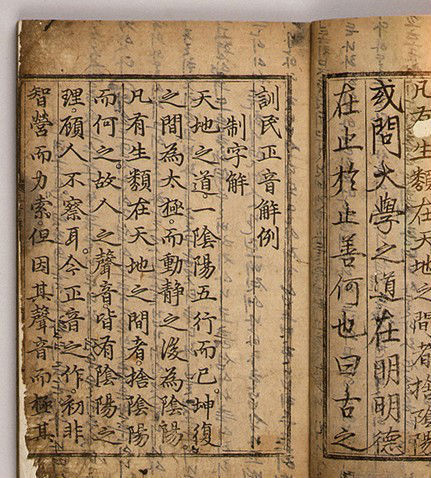 凡有生類在天地之間者捨陰陽
或問大學之道在明明德
在止於止善何也曰古之
訓民正音解例
制字解
天地之道。一陰陽五行而已坤復
之間為太極。而動靜之後為陰陽
凡有生類在天地之間者捨陰陽
而何之。故人之聲音皆有陰陽之
理。顧人不察耳。今正音之作初非
智營而力索。但因其聲音而極其